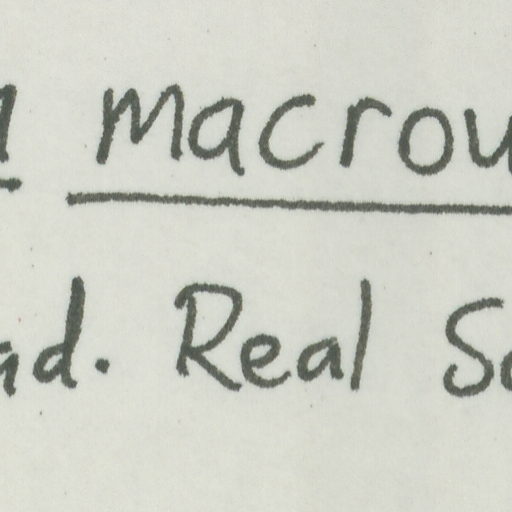 macrou
ad. Real